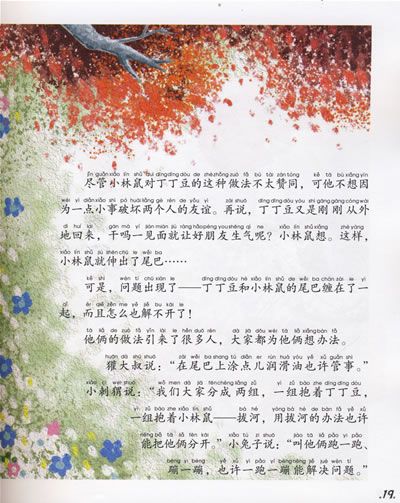 尽管小林鼠对丁丁豆的这种做法不太赞同，可他不想因
为一点小事破坏两个人的友谊。再说，丁丁豆又是刚刚从外
地回来，干吗一见面就让好朋友生气呢？小林鼠想。这样，
小林鼠就伸出了尾巴……
可是，问题出现了——丁丁豆和小林鼠的尾巴缠在了一
起，而且怎么也解不开了！
他俩的做法引来了很多人，大家都为他俩想办法。
獾大叔说：“在尾巴上涂点儿润滑油也许管事。”
小刺猬说：“我们大家分成两组，一组抱着丁丁豆，
一组抱着小林鼠——拔河，用拔河的办法也许
能把他俩分开。”小兔子说：“叫他俩跑一跑，
蹦一蹦，也许一跑一蹦能解决问题。”
.19.